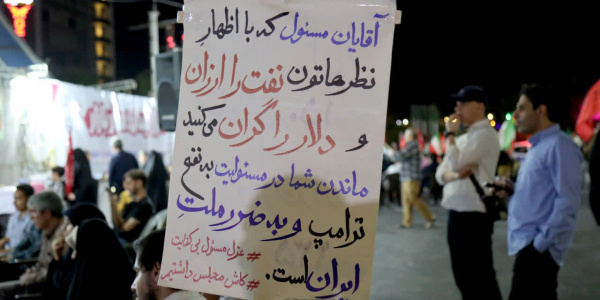 آقایان مسئول که با اظهارِ
نظرهاتون نفت را ارزان
و دلار را گران می‌کنید
ماندن شما در مسئولیت به نفعِ
ترامپ و به ضرر ملتِ
ایران است.
#عزل_مسئول_بی_کفایت
#کاش_مجلس_داشتیم